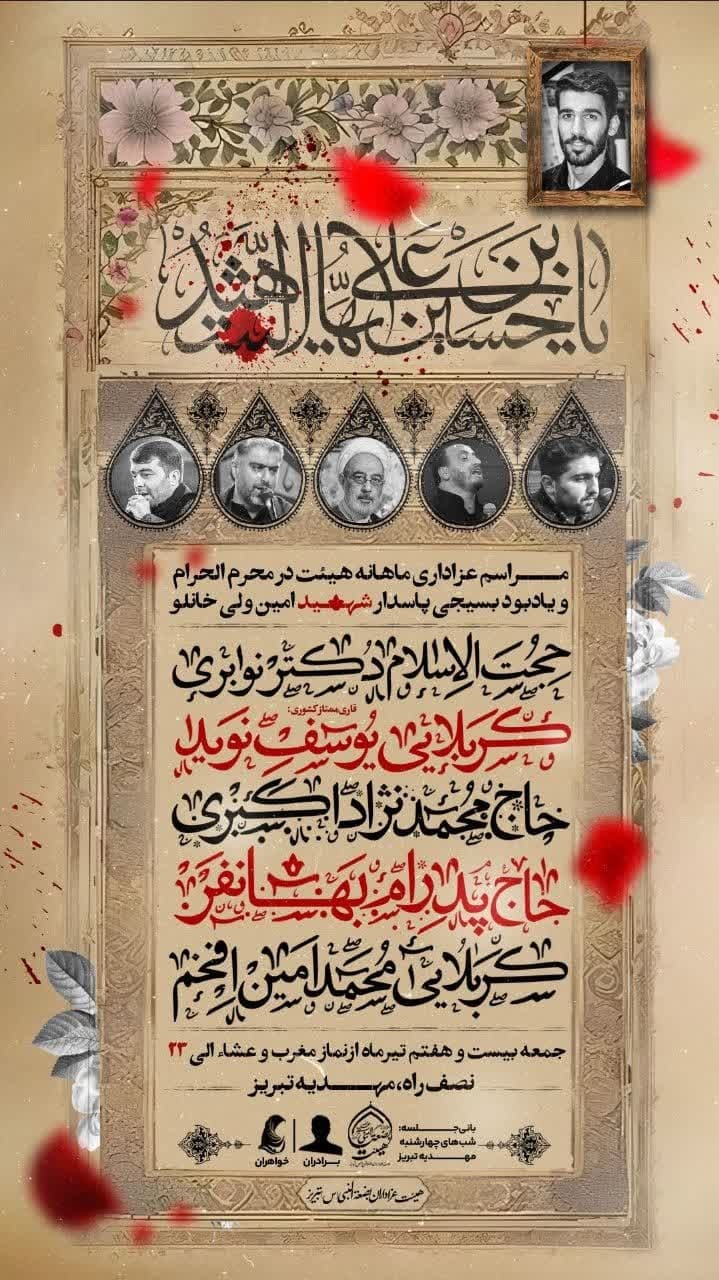 یا حسین بن علی ایها الشهید
مراسم عزاداری ماهانه هیئت در محرم الحرام
و یادبود بسیجی پاسدار شهید امین ولی خانلو
حجت الاسلام دکتر نوابری
قاری ممتاز کشوری:
کربلایی یوسف نوید
حاج محمد نژاد اکبری
حاج پدرام بهانفر
کربلایی محمد امین افخم
جمعه بیست و هفتم تیرماه از نماز مغرب و عشاء الی ۲۳
نصف راه، مهدیه تبریز
بانی جلسه:
شب‌های چهارشنبه
مهدیه تبریز
برادران | خواهران
هیئت عزاداران بضعة النبی س تبریز